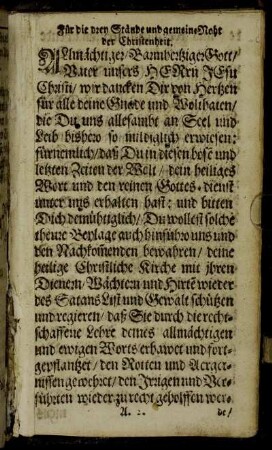 Für die drey Stände und gemeine Noht
der Christenheit.
Allmächtiger/ Barmhertziger Gott/
Vater unsers HERrn JEsu
Christi/ wir dancken Dir von Hertzen
für alle deine Gnade und Wolthaten/
die Du uns allesambt an Seel und
Leib bishero so mildiglich erwiesen;
fürnemlich/ daß Du in diesen böse und
letzten Zeiten der Welt/ dein heiliges
Wort und den reinen Gottes-dienst
unter uns erhalten hast: und bitten
Dich demühtiglich/ Du wollest solche
theure Beylage auch hinführo uns und
den Nachkom̃enden bewahren/ deine
heilige Christliche Kirche mit jhren
Dienern/ Wächtern und Hirtē wieder
des Satans List und Gewalt schützen
und regieren/ daß Sie durch die recht-
schaffene Lehre deines allmächtigen
und ewigen Worts erbawet und fort-
gepflantzet/ den Rotten und Aerger-
nissen gewehret/ den Jrrigen und Ver-
führten wieder zu recht geholffen wer-
A de/